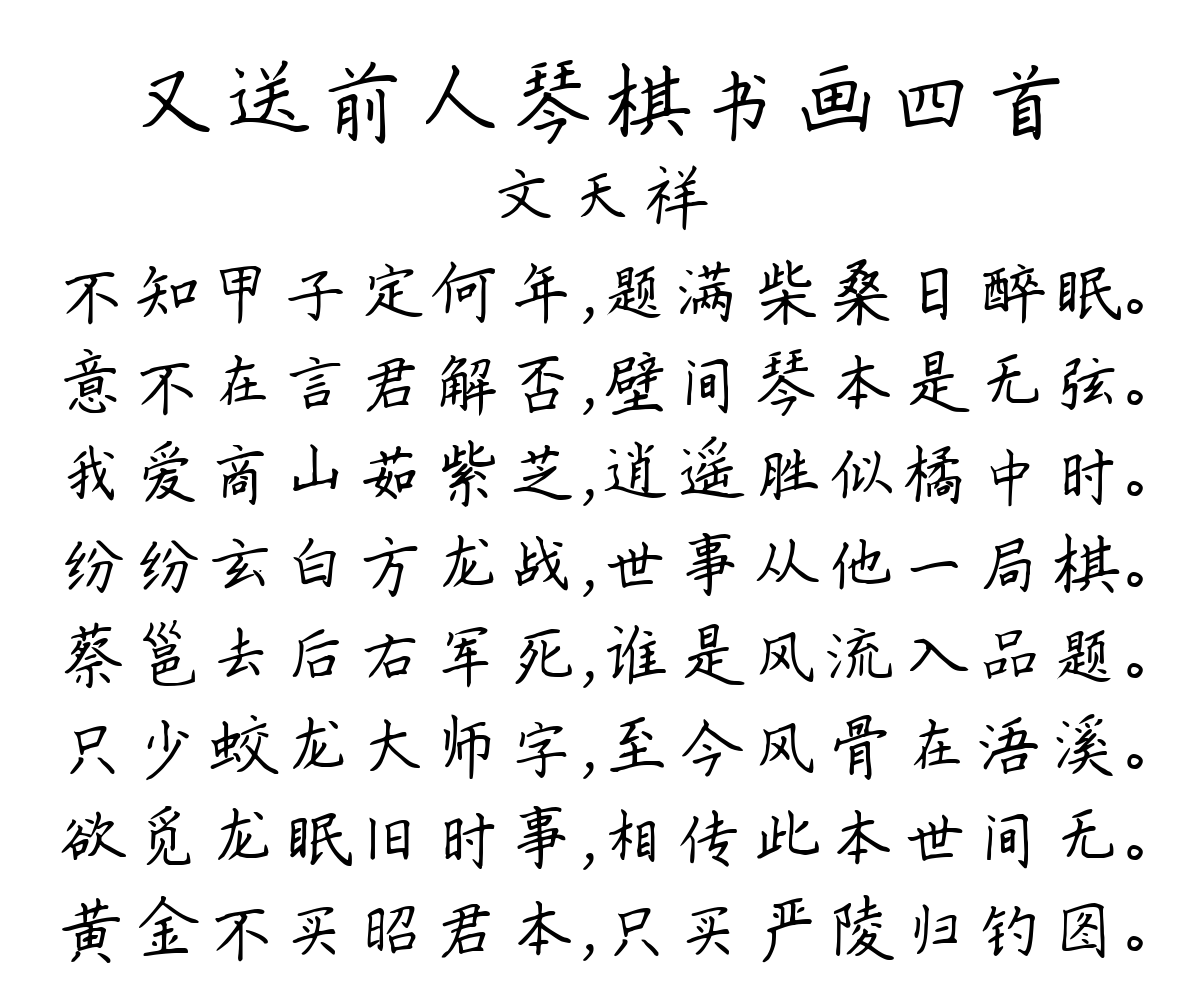 又送前人琴棋书画四首
文天祥
不知甲子定何年,题满柴桑日醉眠。
意不在言君解否,壁间琴本是无弦。
我爱商山茹紫芝,逍遥胜似橘中时。
纷纷玄白方龙战,世事从他一局棋。
蔡邕去后右军死,谁是风流入品题。
只少蛟龙大师字,至今风骨在浯溪。
欲觅龙眠旧时事,相传此本世间无。
黄金不买昭君本,只买严陵归钓图。